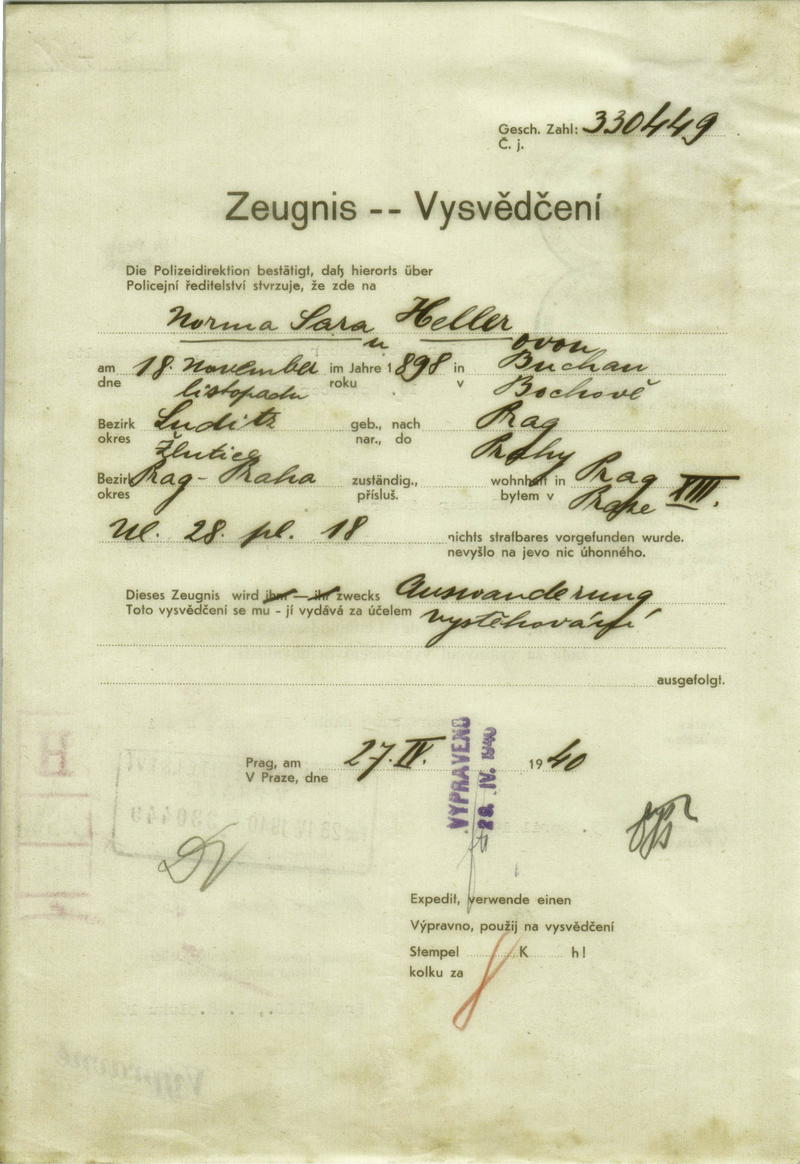 Gesch. Zahl: 330449
Č. j.
Zeugnis -- Vysvědčení
Die Polizeidirektion bestätigt, daß hierorts über
Policejní ředitelství stvrzuje, že zde na
Norma Sara Heller
u ovou
am 18. November im Jahre 1898 in Buchau
dne listopadu roku v Bochově
Bezirk Luditz geb., nach Prag
okres Žlutice nar., do Prahy
Bezirk Prag - Praha zuständig., wohnhaft in Prag XIII.
okres přísluš. bytem v Praze
Ul. 28. pl. 18 nichts strafbares vorgefunden wurde.
nevyšlo na jevo nic úhonného.
Dieses Zeugnis wird ihm — ihr zwecks Auswanderung
Toto vysvědčení se mu - jí vydává za účelem vystěhování
ausgefolgt.
Prag, am 27. IV. 1940
V Praze, dne
VYPRAVENO
28. IV. 1940
Expedit, verwende einen
Výpravno, použij na vysvědčení
Stempel K h!
kolku za